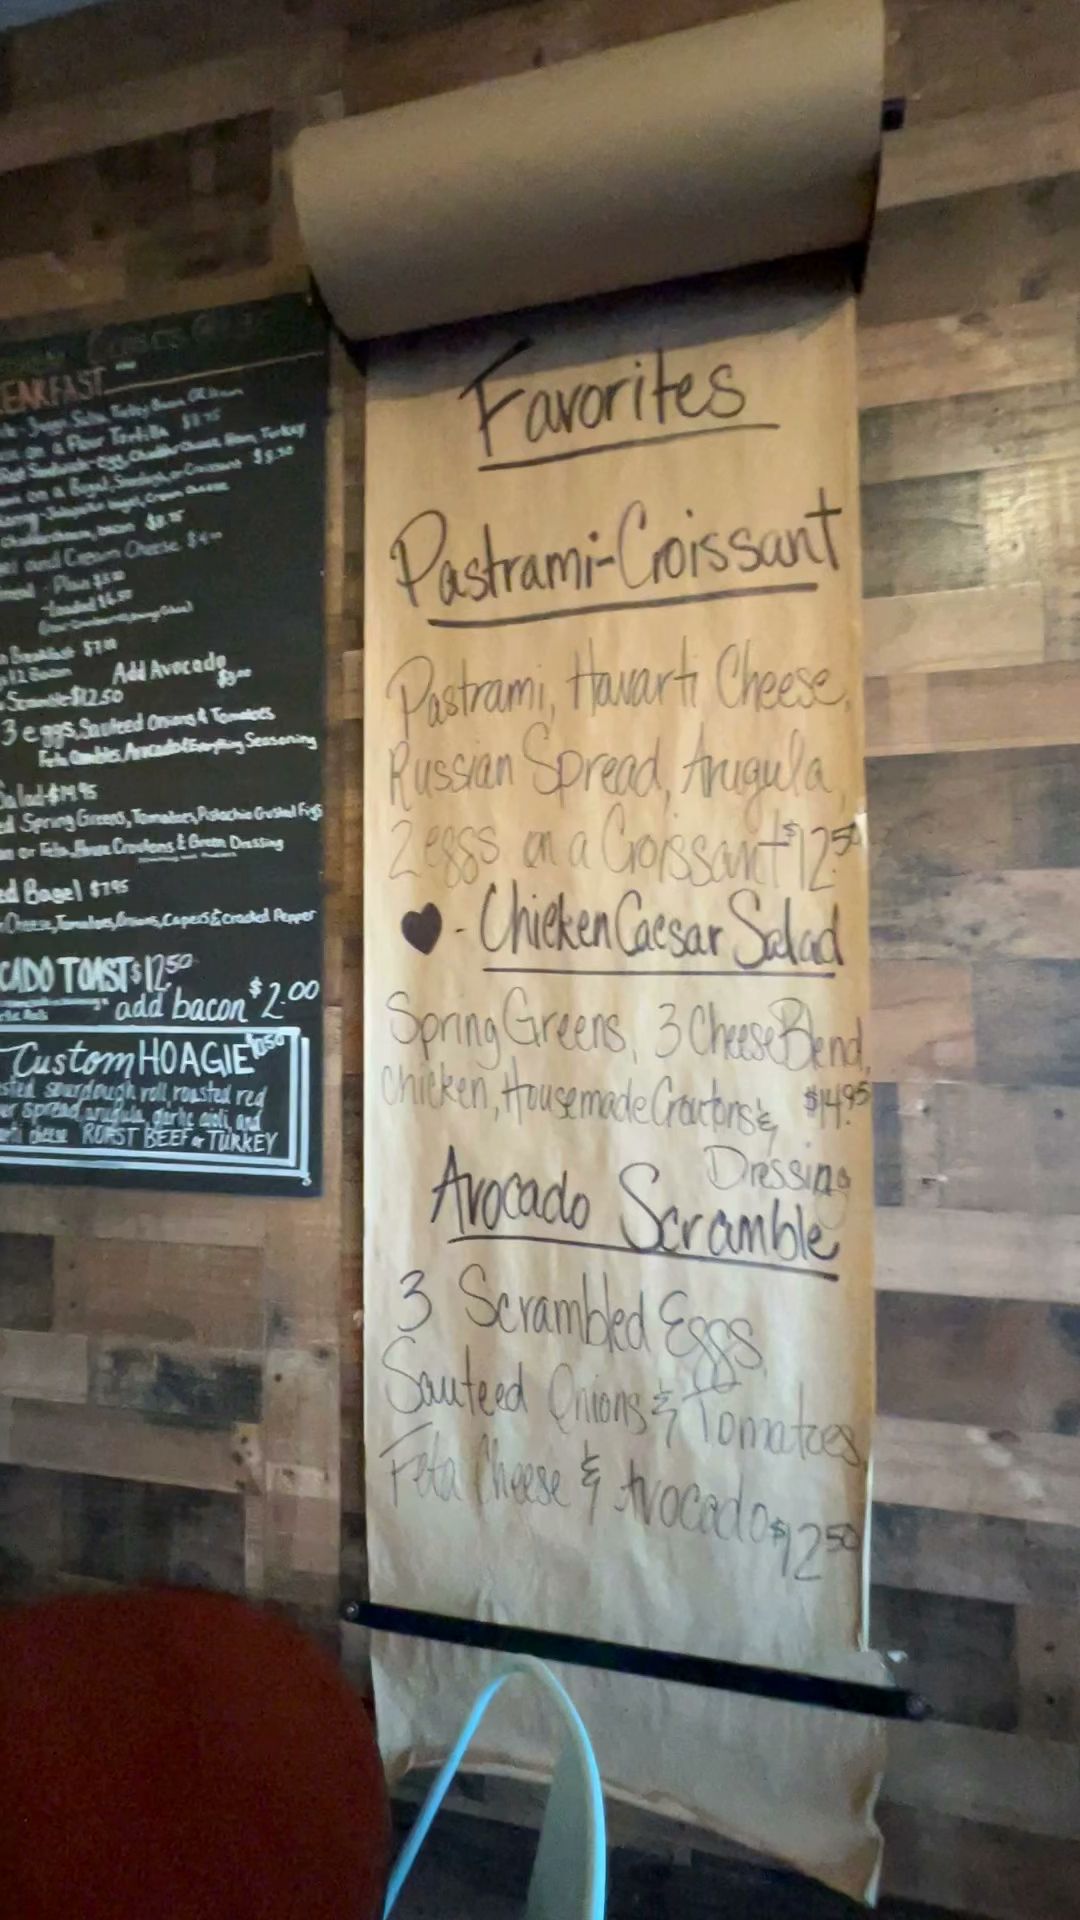 EAKFAST
on a Flour Tortilla
on a Bagel, Sandwich, or Croissant $8.50
and Cream Cheese $4
Plain
Loaded $6.50
Breakfast $7
Add Avocado
Scramble $12.50
3 eggs, Sauteed Onions & Tomatoes
Feta Crumbles, Avocado & Everything Seasoning
Salad $14.95
Spring Greens, Tomatoes, Pistachio Crusted Figs
or Feta, House Croutons & Green Dressing
ed Bagel $7.95
Cheese, Tomatoes, Onions, Capers & Cracked Pepper
CADO TOAST $12.50
add bacon $2.00
Custom HOAGIE
sted sourdough roll, roasted red
er spread, arugula, garlic aioli, and
arti cheese ROAST BEEF or TURKEY
Favorites
Pastrami-Croissant
Pastrami, Havarti Cheese,
Russian Spread, Arugula,
2 eggs on a Croissant $12.50
♥ - Chicken Caesar Salad
Spring Greens, 3 Cheese Blend,
Chicken, Housemade Croutons & $14.95
Dressing
Avocado Scramble
3 Scrambled Eggs
Sauteed Onions & Tomatoes
Feta Cheese & Avocado $12.50